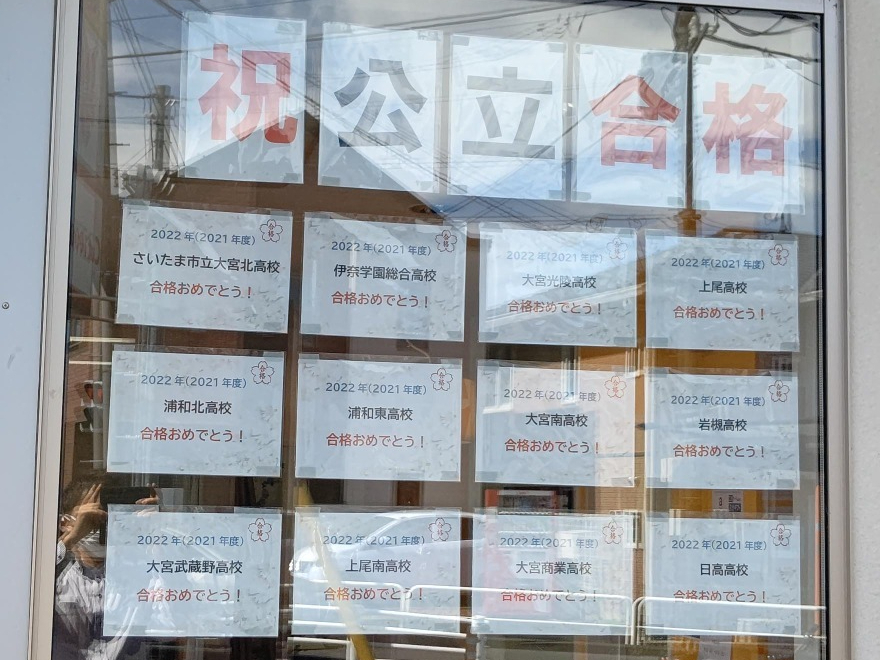 祝公立合格
合格
2022年(2021年度)
さいたま市立大宮北高校
合格おめでとう!
合格
2022年(2021年度)
伊奈学園総合高校
合格おめでとう!
合格
2022年(2021年度)
大宮光陵高校
合格おめでとう!
合格
2022年(2021年度)
上尾高校
合格おめでとう!
合格
2022年(2021年度)
浦和北高校
合格おめでとう!
合格
2022年(2021年度)
浦和東高校
合格おめでとう!
合格
2022年(2021年度)
大宮南高校
合格おめでとう!
合格
2022年(2021年度)
岩槻高校
合格おめでとう!
合格
2022年(2021年度)
大宮武蔵野高校
合格おめでとう!
合格
2022年(2021年度)
上尾南高校
合格おめでとう!
合格
2022年(2021年度)
大宮商業高校
合格おめでとう!
合格
2022年(2021年度)
日高高校
合格おめでとう!